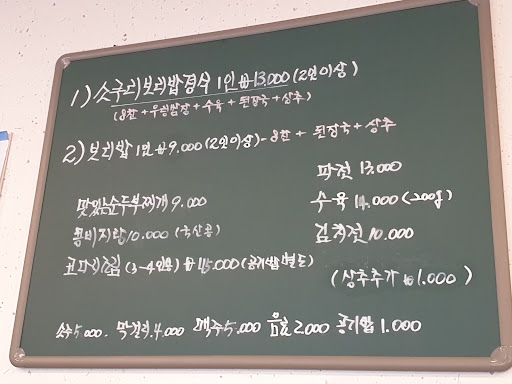 1) 소쿠리보리밥정식 1인 ₩13,000 (2인이상)
(8찬 + 우렁쌈장 + 수육 + 된장국 + 상추)
2) 보리밥 1인 ₩9.000 (2인이상) - 8찬 + 된장국 + 상추
파전 13.000
맛있는순두부찌개 9.000
수육 14.000 (200g)
콩비지탕 10.000 (국산콩)
김치전 10.000
코다리조림 (3~4인용) ₩45.000 (공기밥별도)
(상추추가 ₩1.000)
소주 5.000. 막걸리.4.000 맥주5.000 음료 2.000 공기밥 1.000